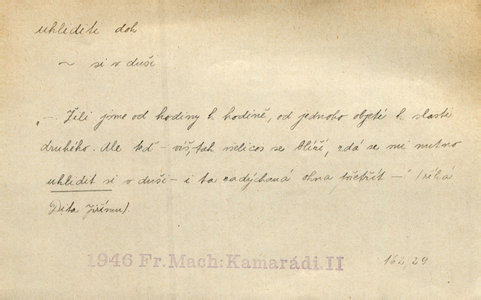 uhlidite dok
~ si v duši
„— Žili jsme od hodiny k hodině, od jednoho objetí k slasti
druhého. Ale teď – víš, tak něco se blíží, zdá se mi nutno
uhlidit si v duši – i ta zadýchaná okna třeštit — “ (říká
Dita Jiřímu).
1946 Fr. Mach: Kamarádi. II
162/29